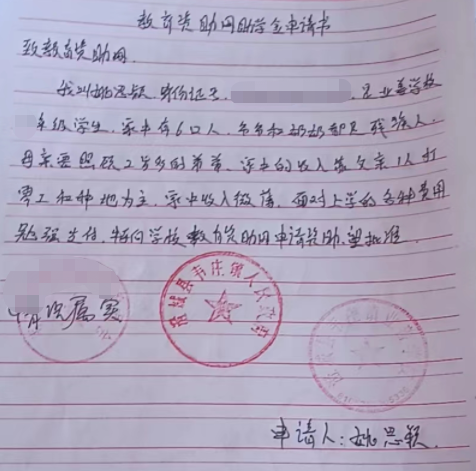 教育资助网助学金申请书
致教育资助网
我叫姚思颖 身份证号 是业善学校
年级学生，家中有6口人，爷爷和奶奶都是残疾人，
母亲要照顾2岁多的弟弟，家中的收入靠父亲1人打
零工和种地为主，家中收入微薄，面对上学的各种费用
勉强支付，特向学校教育资助网申请奖助，望批准
情况属实
县 庄镇人民政府
申请人：姚思颖